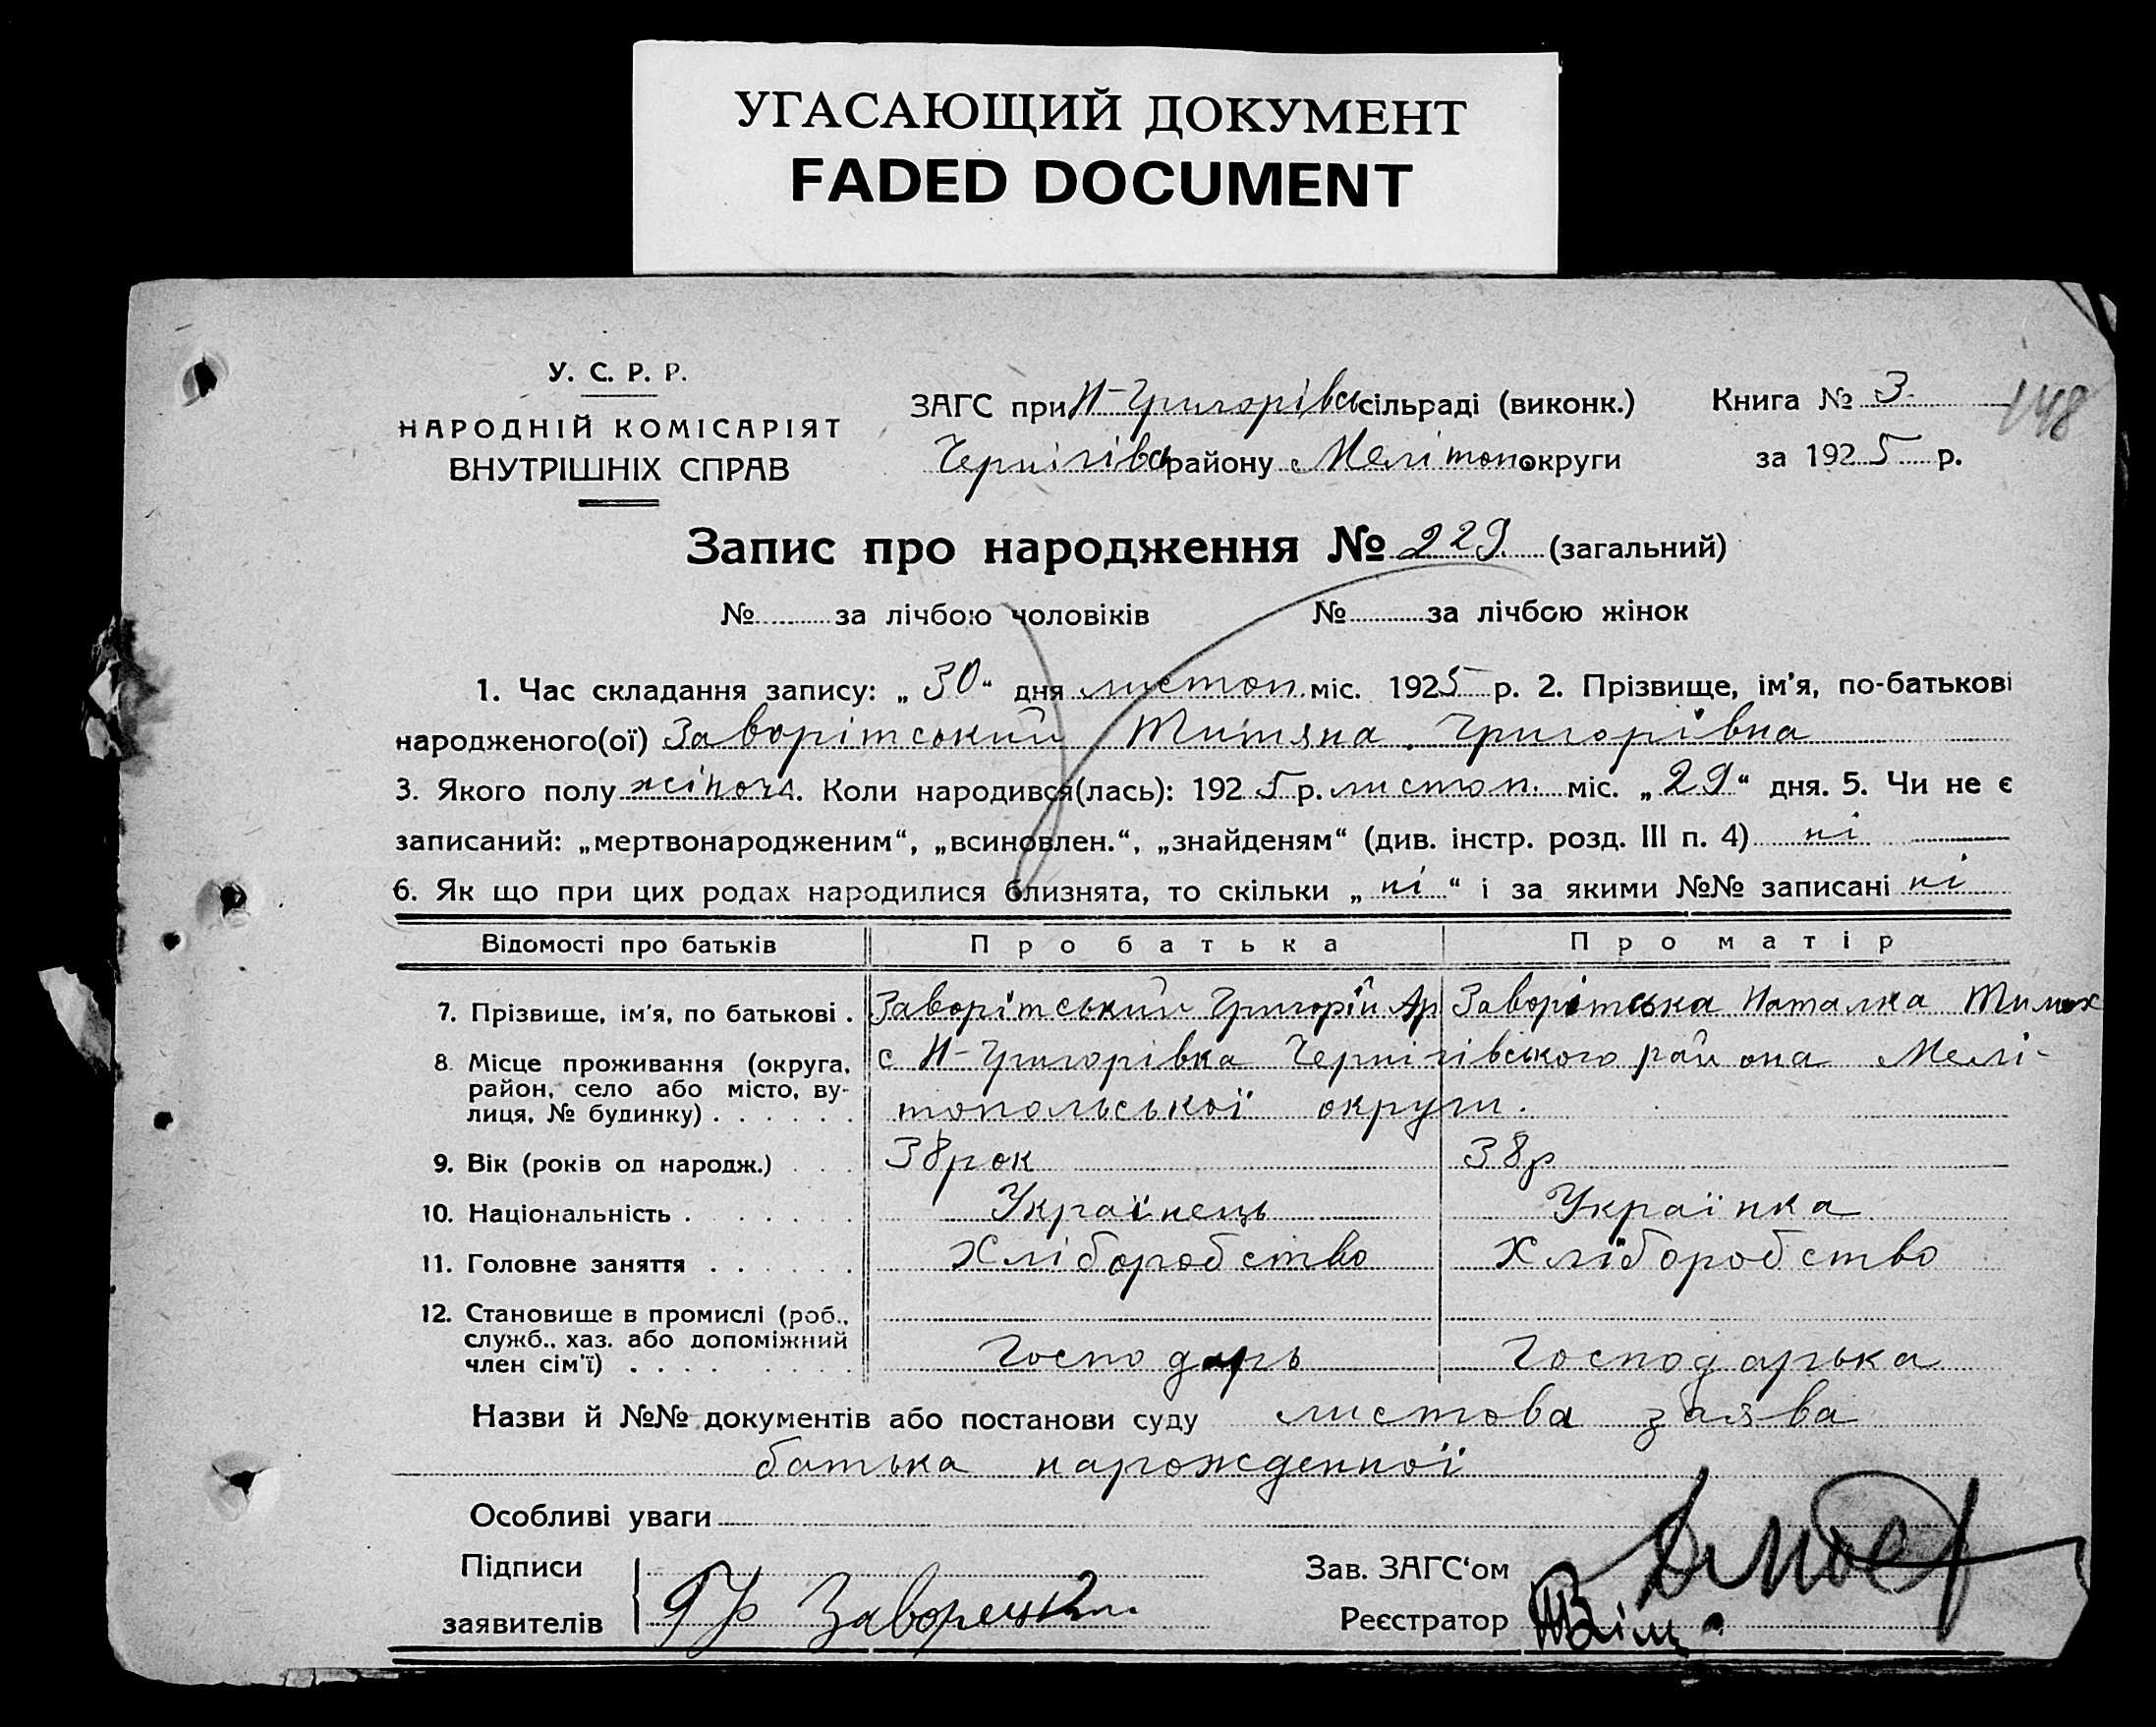 УГАСАЮЩИЙ ДОКУМЕНТ
FADED DOCUMENT
У. С. Р. Р.
НАРОДНІЙ КОМІСАРІЯТ
ВНУТРІШНІХ СПРАВ
ЗАГС при Н-Григорівсь сільраді (виконк.)
Чернігівсь району Мелітоп. округи
Книга № 3.
за 1925 р.
148
Запис про народження № 229 (загальний)
№ за лічбою чоловіків № за лічбою жінок
1. Час складання запису: „30“ дня листоп. міс. 1925 р. 2. Прізвище, ім'я, по-батькові
народженого(ої) Заворітський Титяна Григорівна
3. Якого полу жіноч. Коли народився(лась): 1925 р. листоп. міс. „29“ дня. 5. Чи не є
записаний: „мертвонародженим“, „всиновлен.“, „знайденям“ (див. інстр. розд. III п. 4) ні
6. Як що при цих родах народилися близнята, то скільки „ні“ і за якими №№ записані ні
Відомості про батьків Про батька Про матір
7. Прізвище, ім'я, по батькові . Заворітський Григорій Ар Заворітська Наталка Тимох
8. Місце проживання (округа, с Н-Григорівка Чернігівського района Мелі-
район, село або місто, ву-
лиця, № будинку) . . . . . . топольської округи.
9. Вік (років од народж.) . . . 38 рок 38 р
10. Національність . . . . . . Українець Українка
11. Головне заняття . . . . . . Хлібороб ство Хлібороб ство
12. Становище в промислі (роб.,
служб., хаз. або допоміжний
член сім'ї) . . . . . . . . Господарь Господарька
Назви й №№ документів або постанови суду листова заява
батька нарожденної
Особливі уваги
Підписи
заявителів Заворецкий
Зав. ЗАГС‘ом
Реєстратор